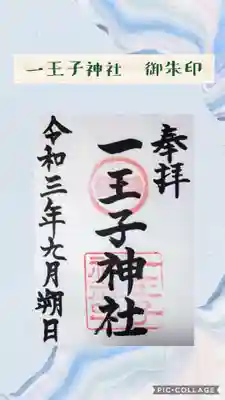 一王子神社　御朱印
奉拝
一王子神社
令和三年九月朔日
PIC•COLLAGE